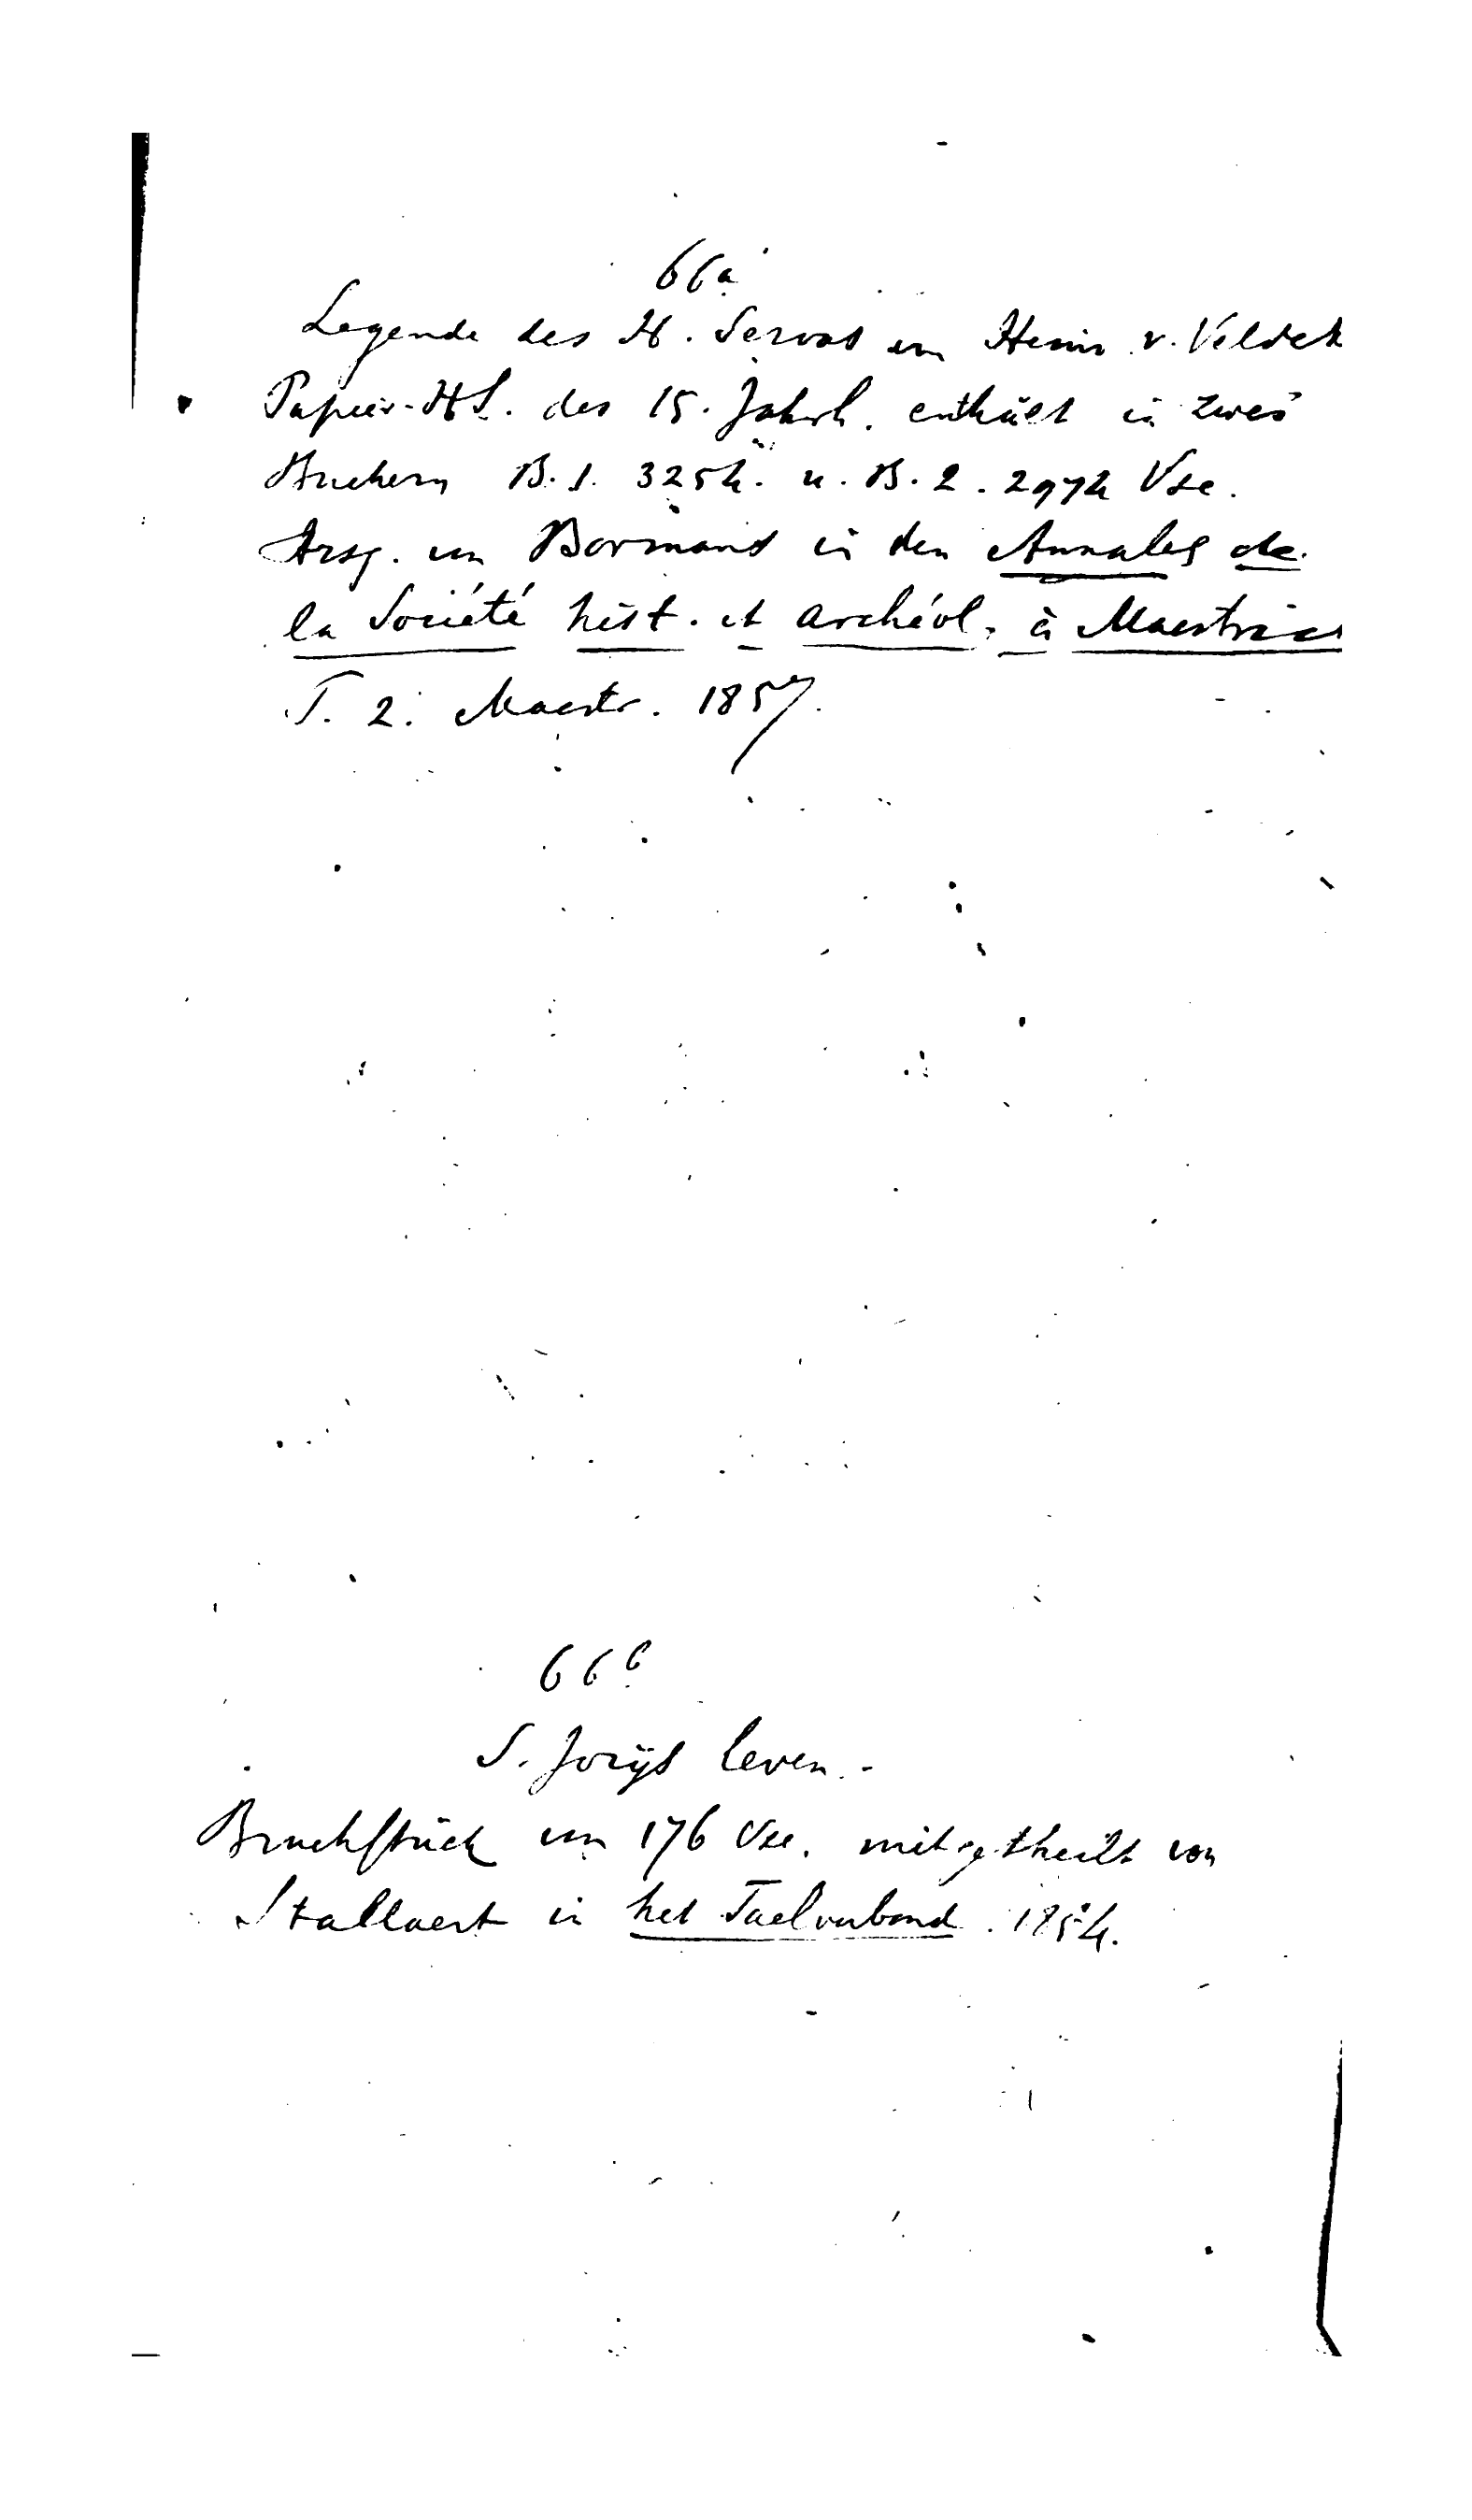 66a
Legende des H. Servas von Heinr. v. Veldek
Papier-HS. des 15. Jahrh. enthält in zwei
Büchern B. 1. 3254. u. B. 2. 2974 Vse.
Hrsg. von Bormans in den Annales de
la Société hist. et archéol. à Maestric
T. 2. Maestr. 1857.
66b
S. Jorijs leven.
Bruchstück von 176 Vse. mitgetheilt von
Stallaert in het Taelverbond 1854.